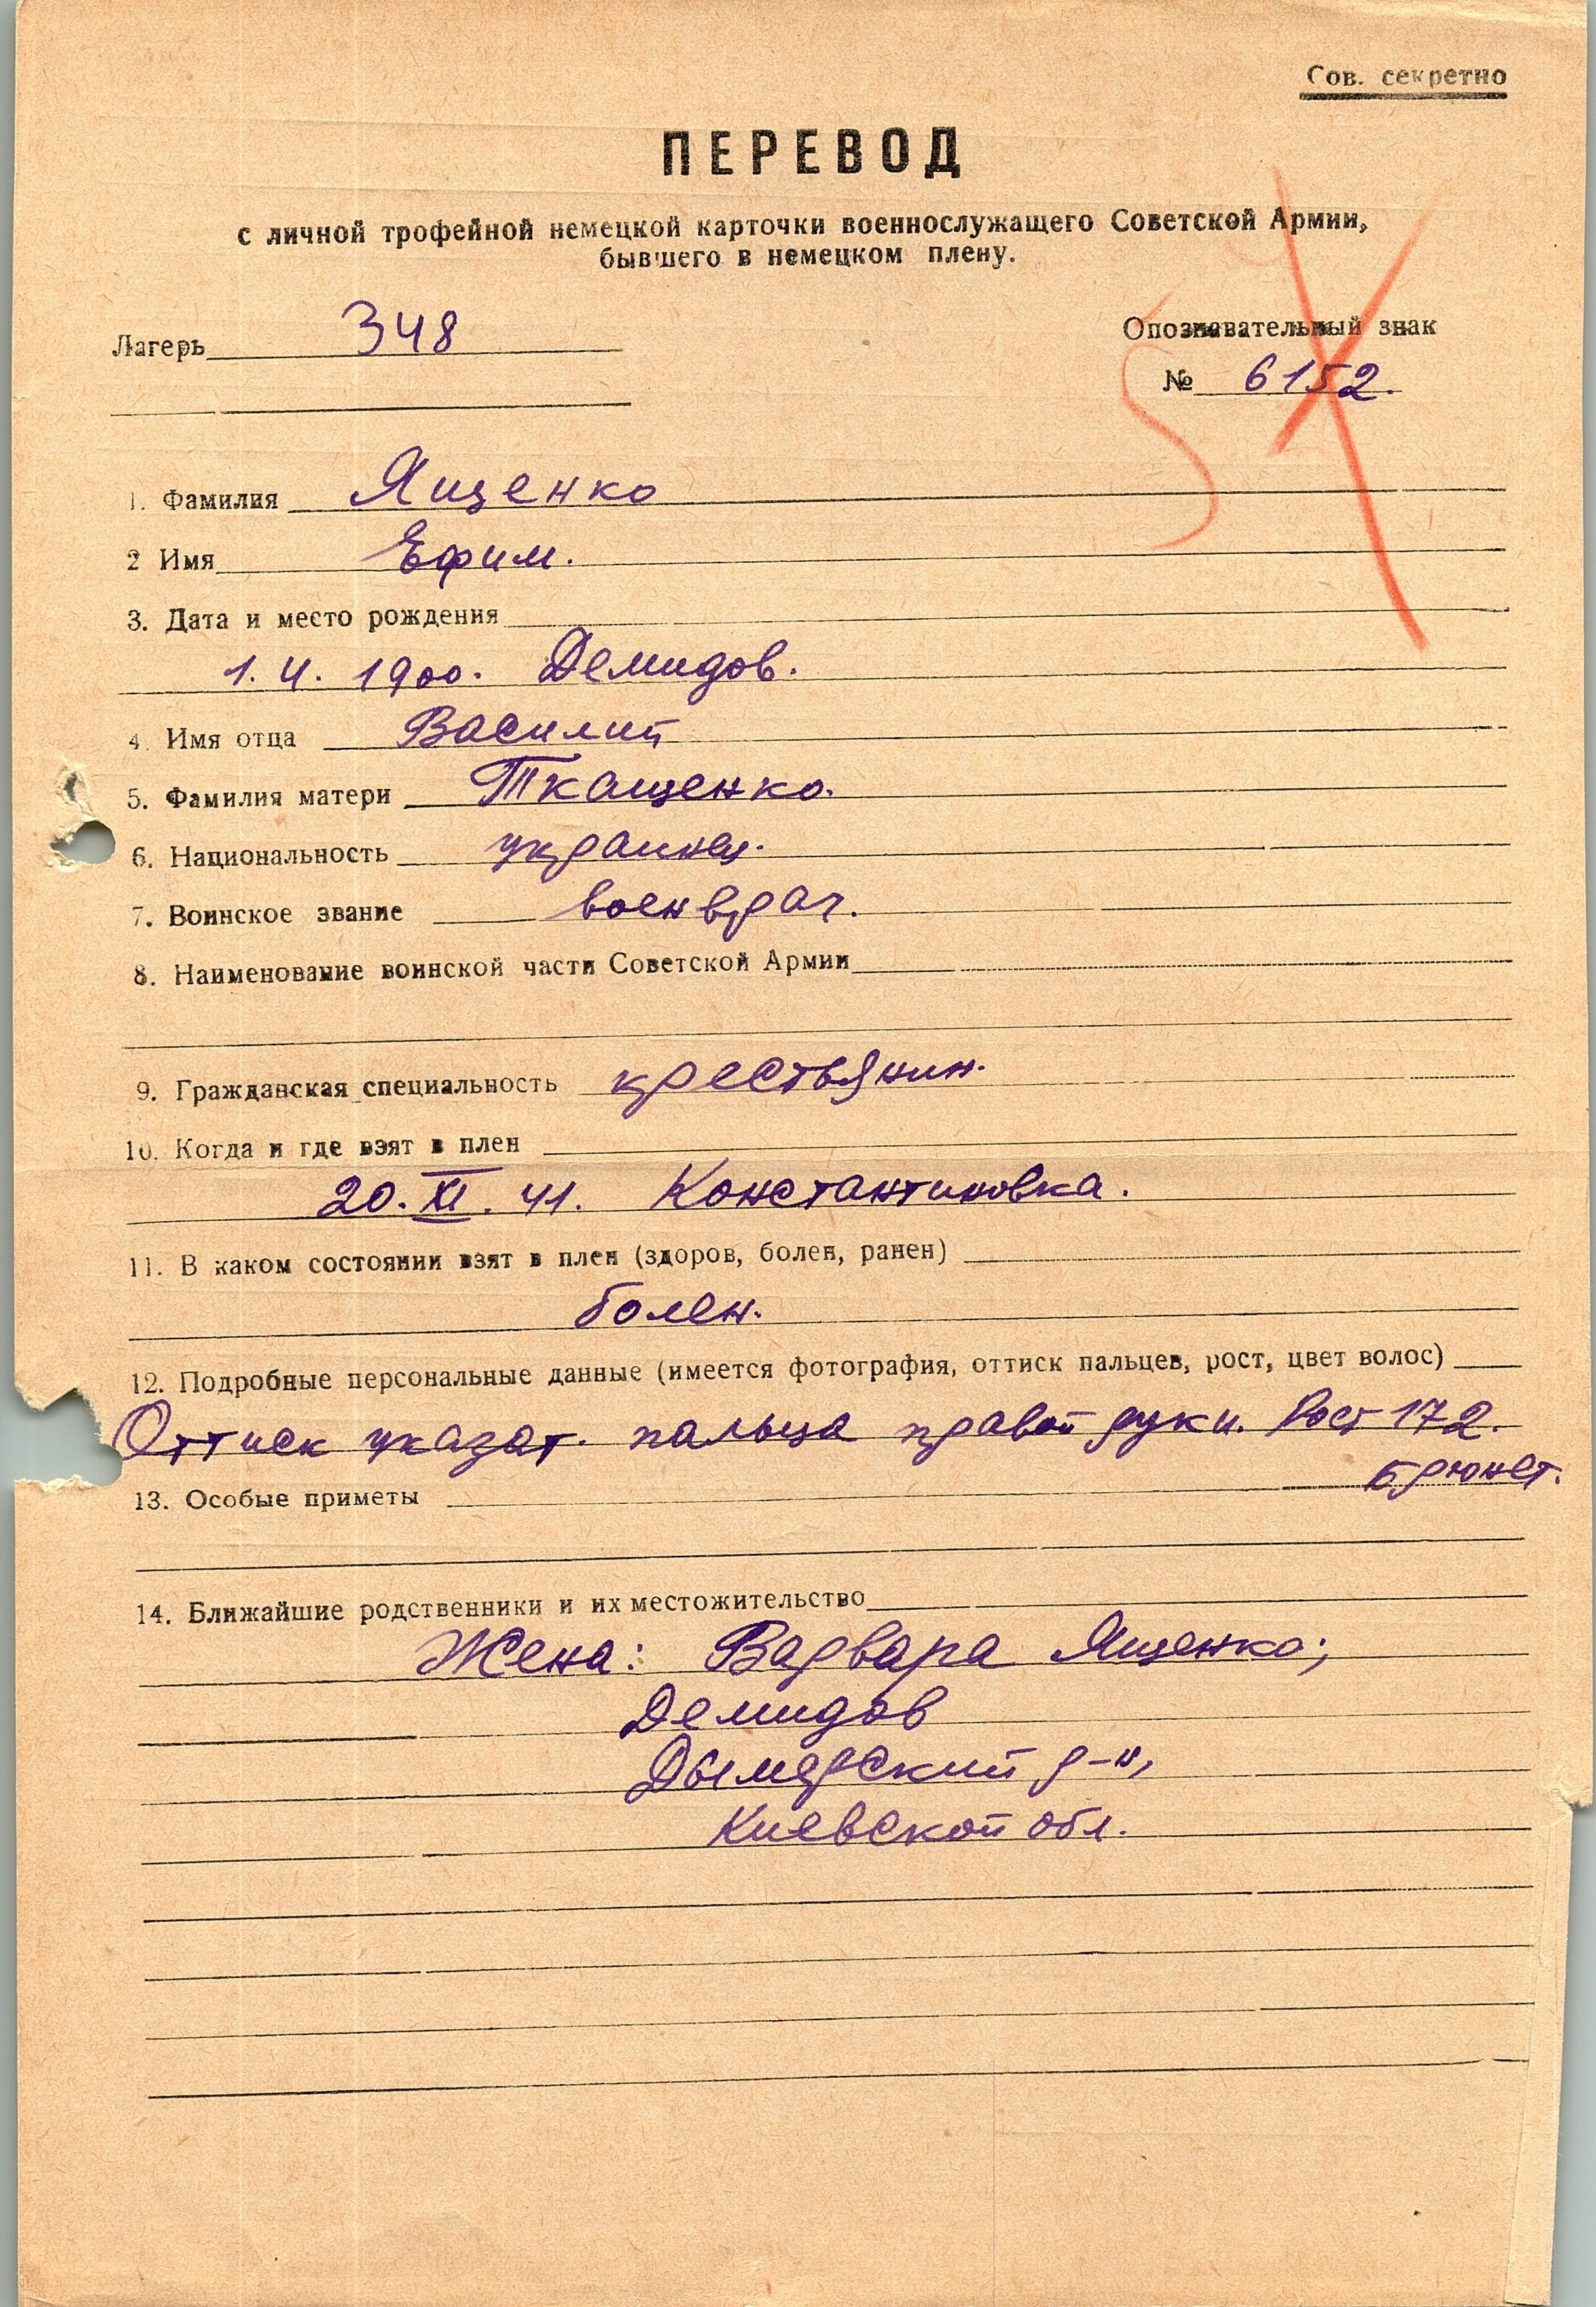 Сов. секретно
ПЕРЕВОД
с личной трофейной немецкой карточки военнослужащего Советской Армии,
бывшего в немецком плену.
Лагерь 348
Опознавательный знак
№ 6152.
1. Фамилия Ященко
2 Имя Ефим.
3. Дата и место рождения
1. 4. 1900. Демидов.
4. Имя отца Василий
5. Фамилия матери Ткащенко.
6. Национальность украинец.
7. Воинское звание военврач.
8. Наименование воинской части Советской Армии
9. Гражданская специальность крестьянин.
10. Когда и где взят в плен
20. XI. 41. Константиновка.
11. В каком состоянии взят в плен (здоров, болен, ранен)
болен.
12. Подробные персональные данные (имеется фотография, оттиск пальцев, рост, цвет волос)
Оттиск указат. пальца правой руки. Рост 172.
брюнет.
13. Особые приметы
14. Ближайшие родственники и их местожительство
Жена: Варвара Ященко;
Демидов
Дымерский р-н,
Киевской обл.